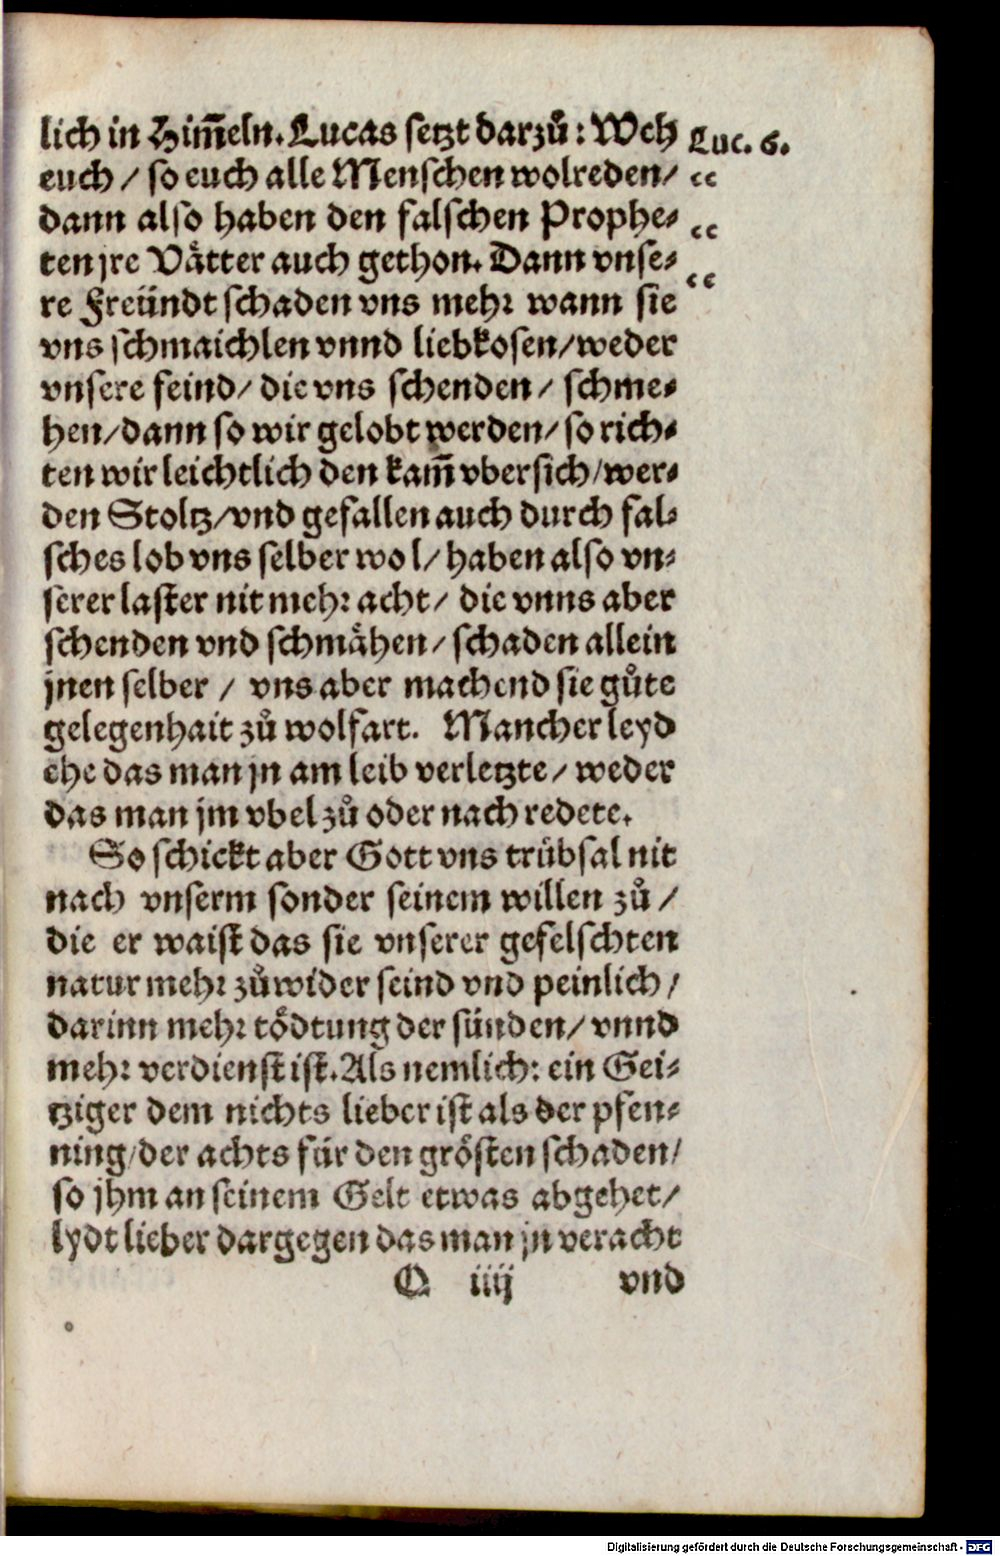 lich in Him̃eln. Lucas setzt darzů: Weh
Luc. 6.
euch / so euch alle Menschen wolreden /
dann also haben den falschen Prophe-
ten jre Vätter auch gethon. Dann vnse-
re Freündt schaden vns mehr wann sie
vns schmaichlen vnnd liebkosen / weder
vnsere feind / die vns schenden / schme-
hen / dann so wir gelobt werden / so rich-
ten wir leichtlich den kam̃ vbersich / wer-
den Stoltz / vnd gefallen auch durch fal-
sches lob vns selber wol / haben also vn-
serer laster nit mehr acht / die vnns aber
schenden vnd schmähen / schaden allein
jnen selber / vns aber machend sie gůte
gelegenhait zů wolfart. Mancher leyd
ehe das man jn am leib verletzte / weder
das man jm vbel zů oder nach redete.
So schickt aber Gott vns trübsal nit
nach vnserm sonder seinem willen zů /
die er waist das sie vnserer gefelschten
natur mehr zůwider seind vnd peinlich /
darinn mehr tödtung der sünden / vnnd
mehr verdienst ist. Als nemlich: ein Gei-
tziger dem nichts lieber ist als der pfen-
ning / der achts für den grösten schaden /
so jhm an seinem Gelt etwas abgehet /
lydt lieber dargegen das man jn veracht
Q iiij vnd
Digitalisierung gefördert durch die Deutsche Forschungsgemeinschaft - DFG